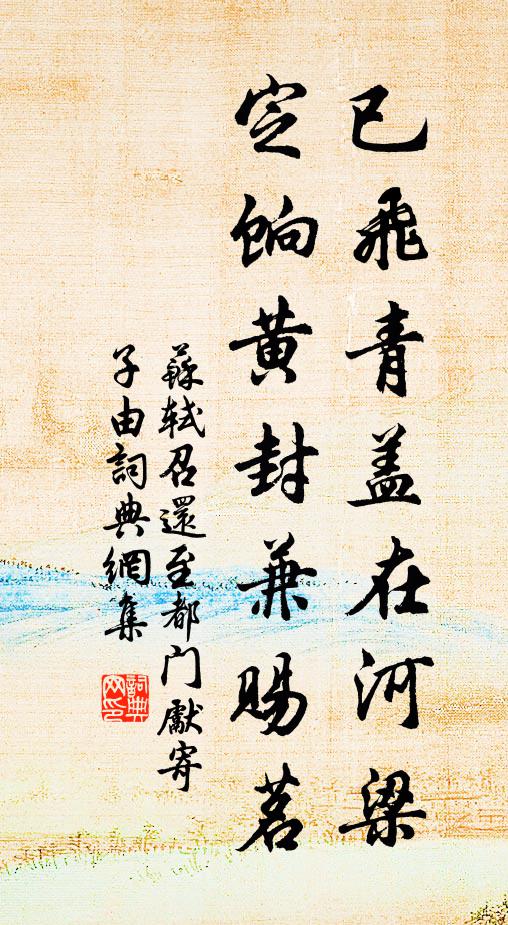 已飛青盖在河梁
定餉黄封兼賜茗
蘇軾召還至都門獻寄
子由詞典網集
詞典网印